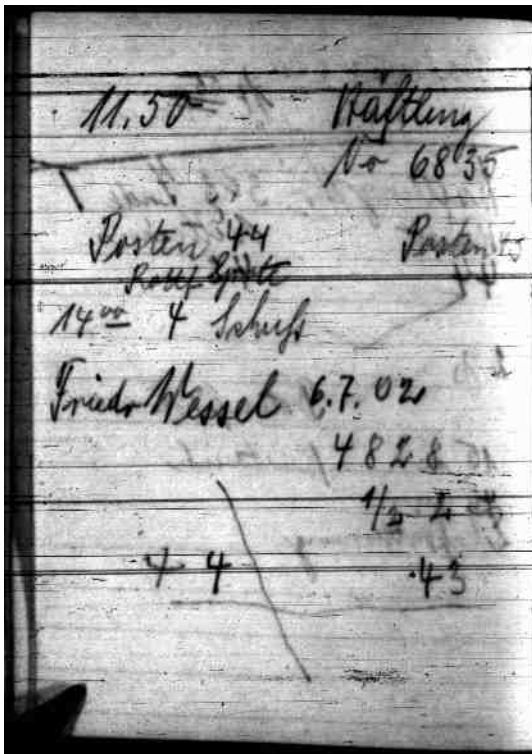 11.50 Häftling
No 6835
Posten 44 Posten 43
44
14 00 4 Schuß
Friedr Wessel 6.7.02
4828
44 43